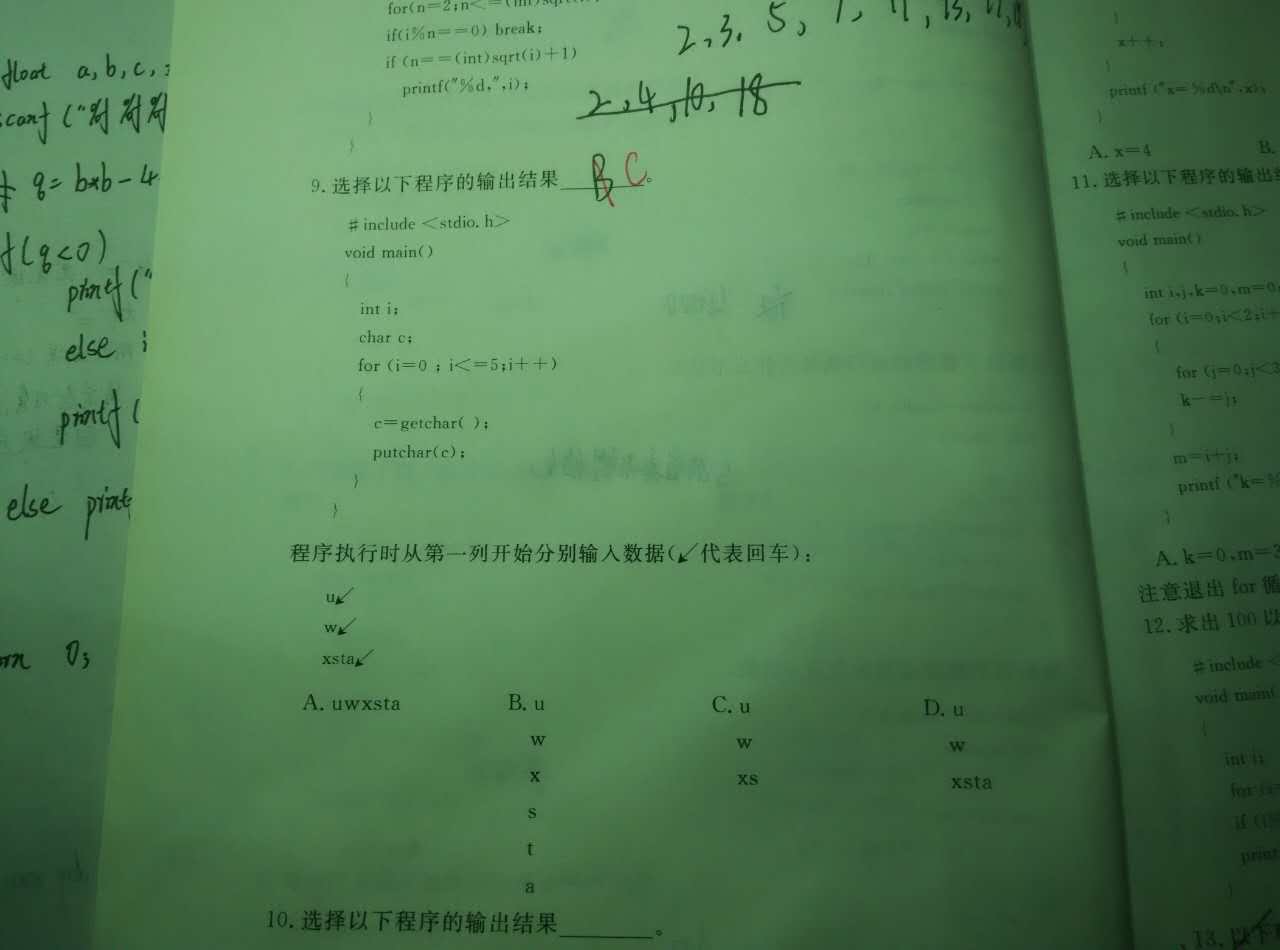 float a, b, c,
q = b*b - 4
(q<0)
printf("
else
printf(
else print
0;
for(n=2;n<=(int)sqrt(
if(i%n==0) break;
if (n==(int)sqrt(i)+1)
printf("%d,",i);
}
}
2,3.5,
2,4,10,18
9.选择以下程序的输出结果 B C 。
#include <stdio.h>
void main()
{
int i;
char c;
for (i=0 ; i<=5;i++)
{
c=getchar( );
putchar(c);
}
}
程序执行时从第一列开始分别输入数据(↙代表回车):
u↙
w↙
xsta↙
A. uwxsta B. u C. u D. u
w w w
x xs xsta
s
t
a
10.选择以下程序的输出结果________。
}
x++;
}
printf ("x=%d\n",x);
}
A. x=4 B.
11.选择以下程序的输出
#include <stdio.h>
void main()
{
int i,j,k=0,m=0
for (i=0;i<2;i+
{
for (j=0;j<3
k-=j;
}
m=i+j;
printf ("k=%
}
A. k=0,m=3
注意退出 for 循
12.求出 100 以
#include <
void main(
{
int i;
for (i
if (
print
}
13.以下